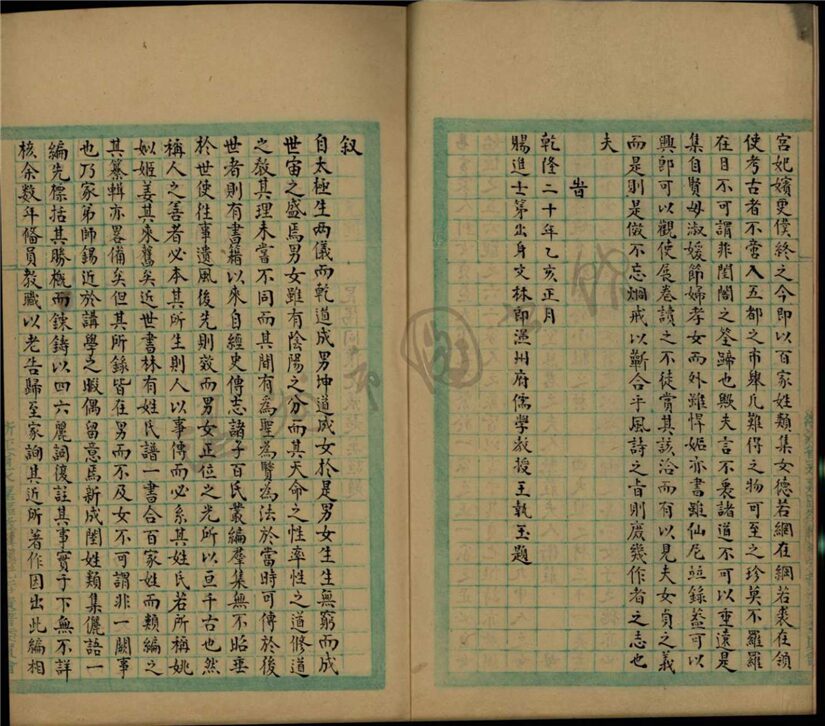 宮妃嬪更僕終之今即以百家姓類集女德若網在綱若裘在領
使考古者不啻入五都之市舉凡難得之物可至之珍莫不羅羅
在目不可謂非閨閤之筌蹄也與夫言不裹諸道不可以重遠是
集自賢母淑媛節婦孝女而外雖悍妬亦書雖仙尼並錄蓋可以
興即可以觀使展卷讀之不徒賞其該洽而有以見夫女貞之義
而是則是傚不忘烱戒以蘄合乎風詩之旨則庶幾作者之志也
夫
旹
乾隆二十年乙亥正月
賜進士第出身文林郎溫州府儒學教授王執玉題
叙
自太極生两儀而乾道成男坤道成女於是男女生生無窮而成
世宙之盛焉男女雖有陰陽之分而其天命之性率性之道修道
之教其理未嘗不同而其間有為聖為賢為法於當時可傳於後
世者則有書籍以來自經史傳志諸子百氏叢編羣集無不昭垂
於世使往事遺風後先則效而男女正位之光所以亘千古也然
稱人之善者必本其所生則人以事傳而必系其姓氏若所稱姚
姒姬姜其來舊矣近世書林有姓氏譜一書合百家姓而類編之
其纂輯亦畧備矣但其所錄皆在男而不及女不可謂非一闕事
也乃家弟師錫近於講學之暇偶留意焉新成閨姓類集儷語一
編先標括其勝概而錬鑄以四六麗詞復註其事實于下無不詳
核余数年偹員教職以老告歸至家詢其近所著作因出此編相